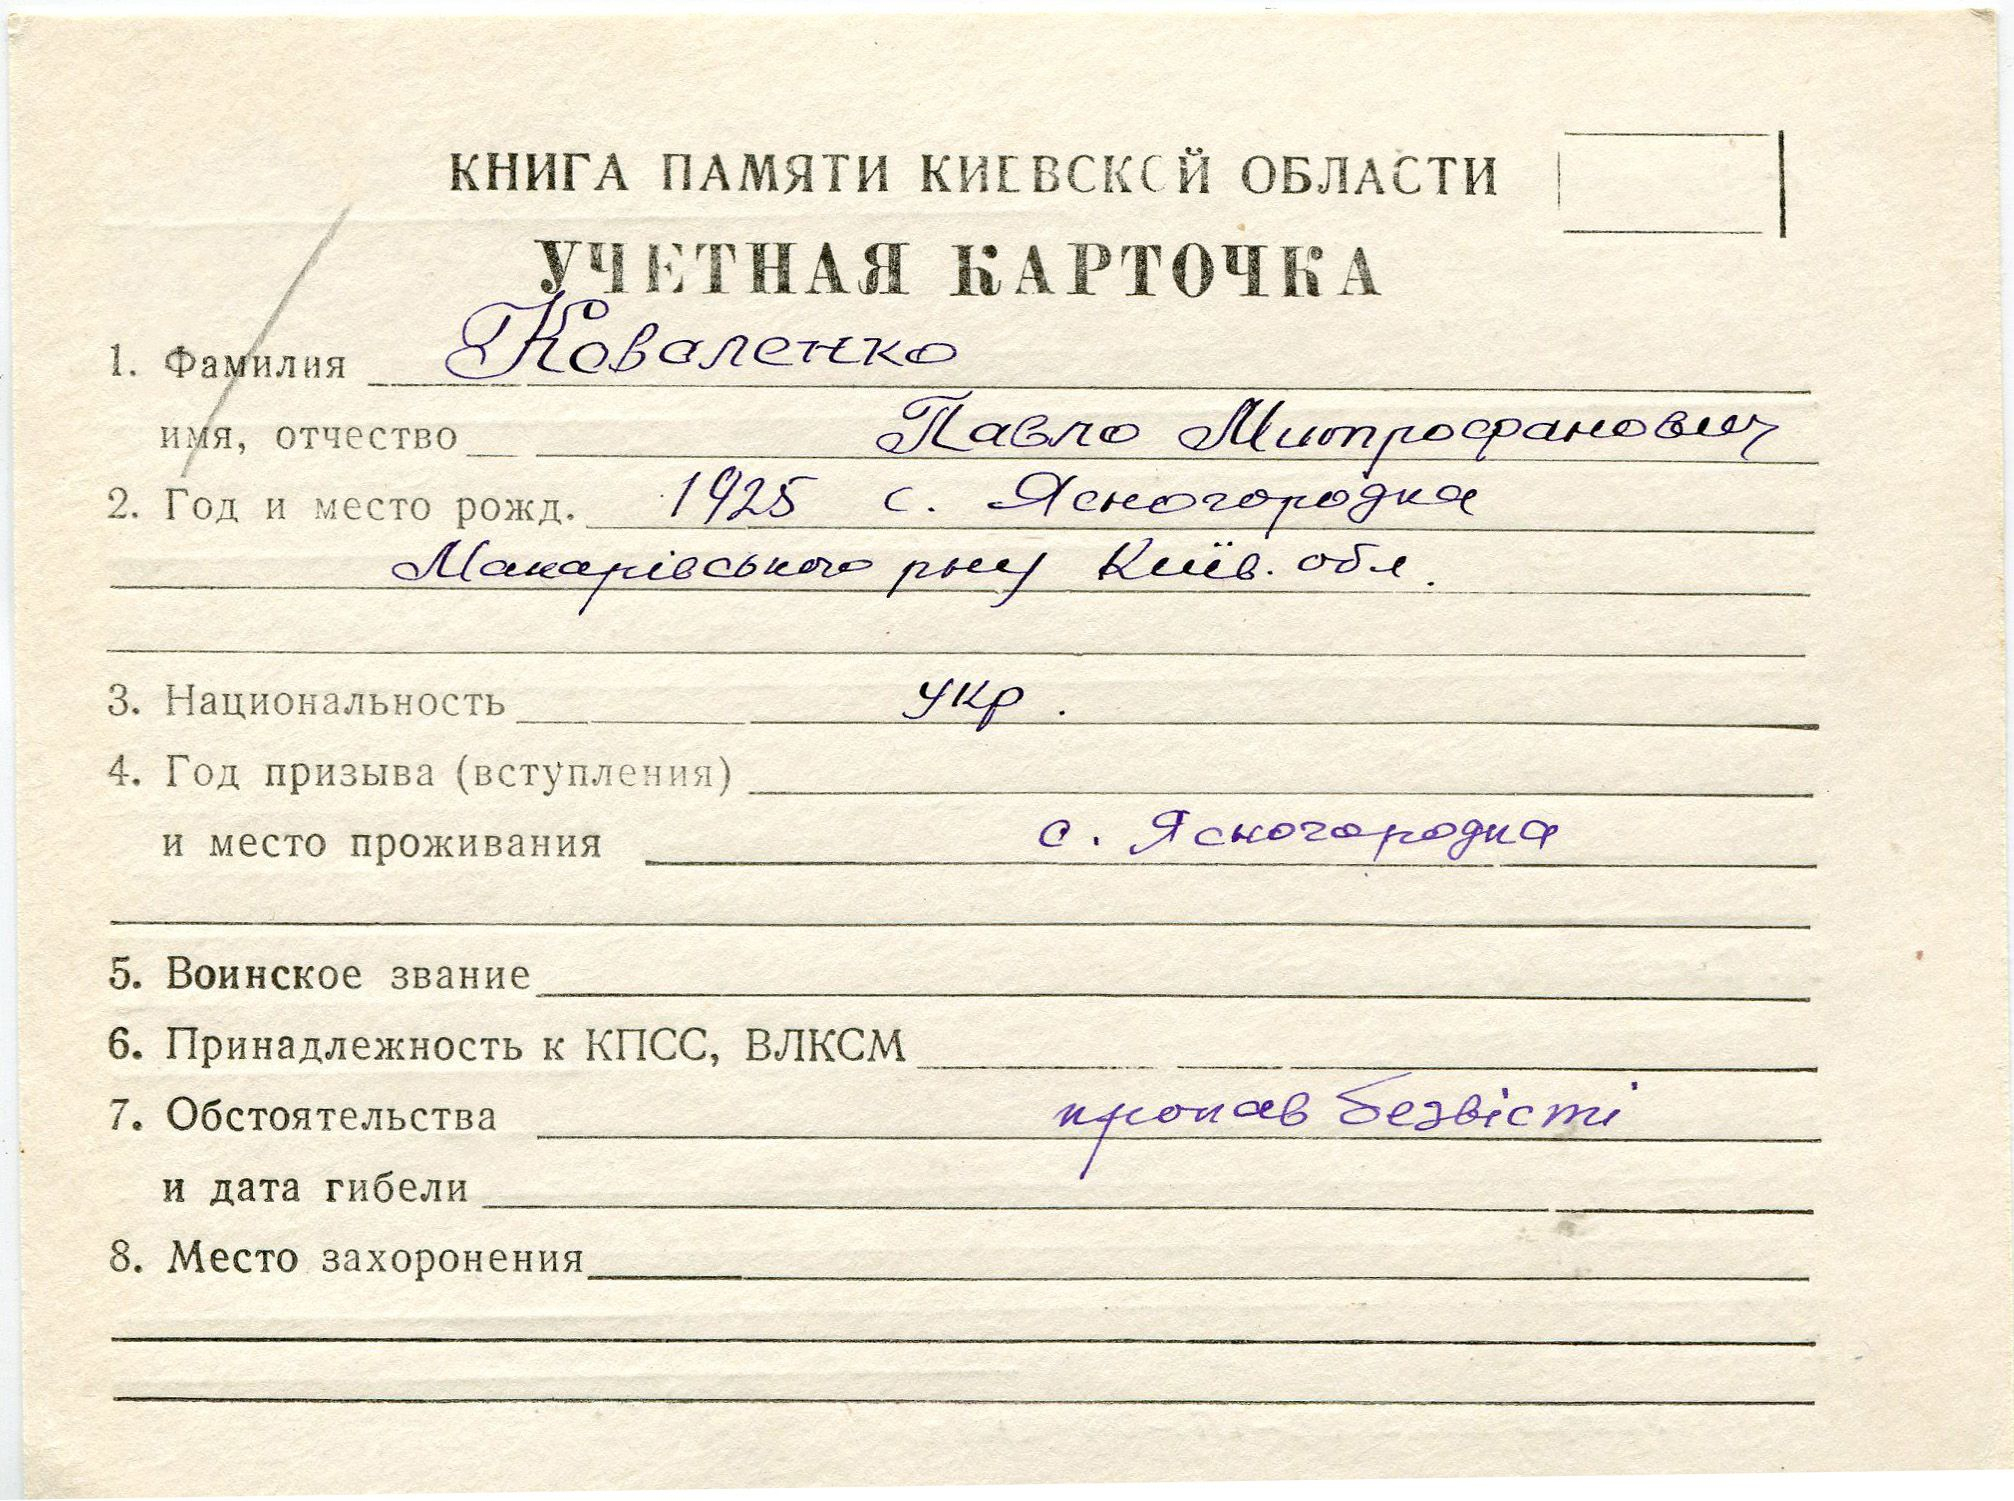 КНИГА ПАМЯТИ КИЕВСКОЙ ОБЛАСТИ
УЧЕТНАЯ КАРТОЧКА
1. Фамилия Коваленко
имя, отчество Павло Митрофанович
2. Год и место рожд. 1925 с. Ясногородка
Макарівського р-ну Київ. обл.
3. Национальность укр.
4. Год призыва (вступления)
и место проживания с. Ясногородка
5. Воинское звание
6. Принадлежность к КПСС, ВЛКСМ
7. Обстоятельства пропав безвісті
и дата гибели
8. Место захоронения